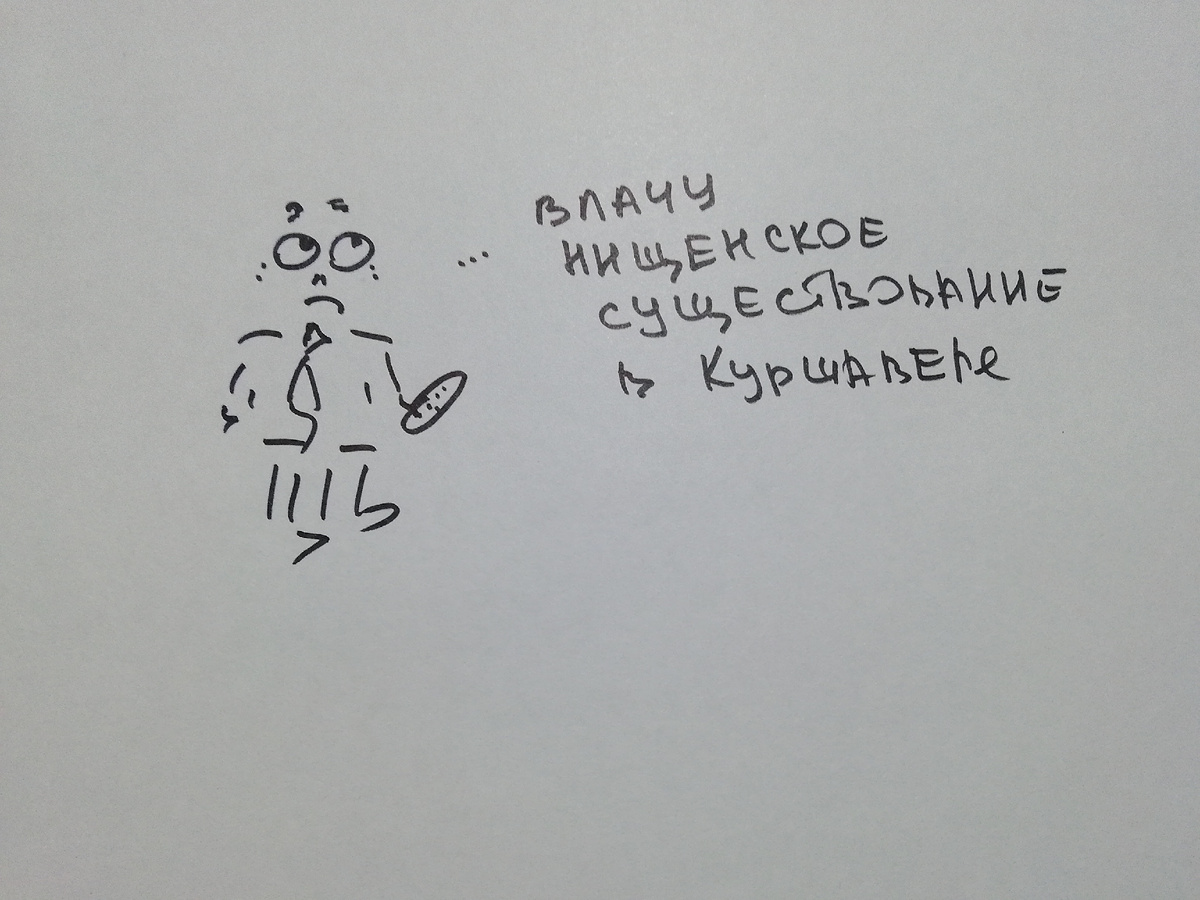 ... ВЛАЧУ
НИЩЕНСКОЕ
СУЩЕСТВОВАНИЕ
В КУРШАВЕЛЕ